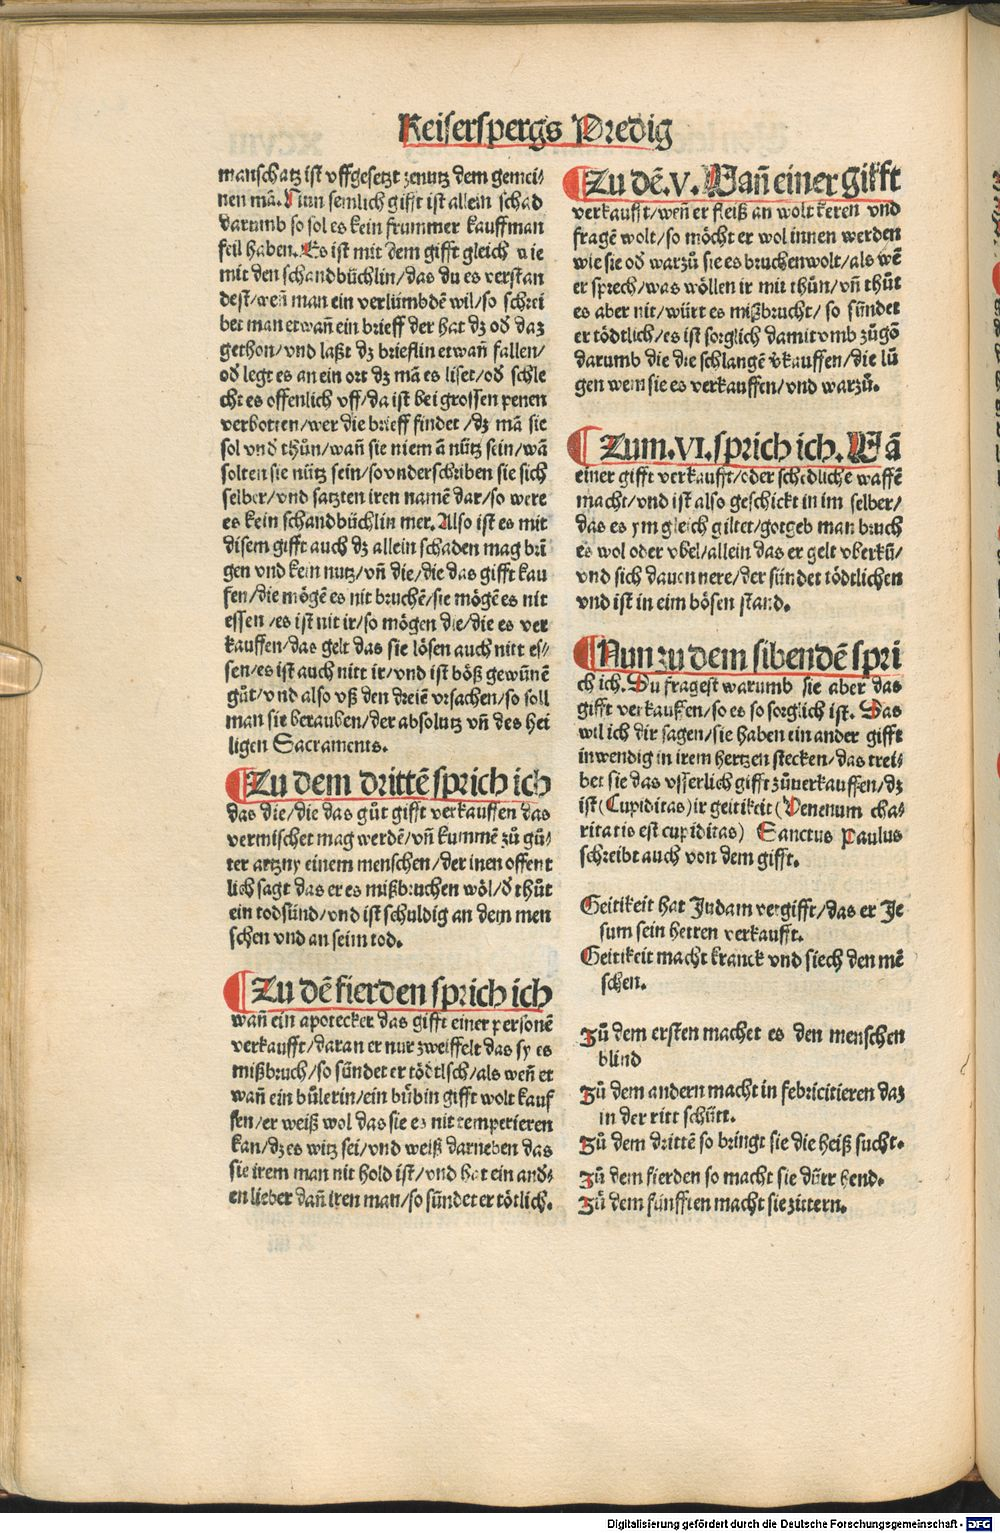 Keiserspergs Predig
manschatz ist vffgesetzt zenutz dem gemei⸗
nen mā. Nun semlich gifft ist allein schad
darumb so sol es kein frummer kauffman
feil haben. Es ist mit dem gifft gleich wie
mit den schandbüchlin/das du es verstan
dest/weñ man ein verlümbdē wil/so schrei
bet man etwañ ein brieff der hat dz oď daz
gethon/vnd laßt dz brieflin etwañ fallen/
oď legt es an ein ort dz mā es liset/oď schle
cht es offenlich vff/da ist bei grossen penen
verbotten/wer die brieff findet /dz mā sie
sol vnd thůn/wañ sie niemā nütz sein/wā
solten sie nütz sein/so vnderschriben sie sich
selber/vnd satzten iren namē dar/so were
es kein schandbüchlin mer. Also ist es mit
disem gifft auch dz allein schaden mag brī
gen vnd kein nutz/vñ die/die das gifft kau
fen/die mögē es nit bruchē/sie mögē es nit
essen /es ist nit ir/so mögen die/die es ver
kauffen/das gelt das sie lösen auch nitt es⸗
sen/es ist auch nitt ir/vnd ist böß gewūnē
gůt/vnd also vß den dreiē vrsachen/so soll
man sie berauben/der absolutz vñ des hei
ligen Sacraments.
Zu dem drittē sprich ich
das die/die das gůt gifft verkauffen das
vermischet mag werdē/vñ kummē zů gů⸗
ter artzny einem menschen/der inen offent
lich sagt das er es mißbruchen wöl/ď thůt
ein todsünd/vnd ist schuldig an dem men
schen vnd an seim tod.
Zu dē fierden sprich ich
wañ ein apotecker das gifft einer personē
verkaufft/daran er nur zweiffelt das sy es
mißbruch/so sündet er tödtlsch/als weñ er
wañ ein bůlerin/ein bübin gifft wolt kauf
fen/er weiß wol das sie es nit temperieren
kan/dz es witz sei/vnd weiß darneben das
sie irem man nit hold ist/vnd hat ein and⸗
en lieber dañ iren man/so sündet er tötlich.
Zu dē .V. Wañ einer gifft
verkaufft/weñ er fleiß an wolt keren vnd
fragē wolt/so möcht er wol innen werden
wie sie oď warzů sie es bruchen wolt/als wē
er sprech/was wöllen ir mit thůn/vñ thůt
es aber nit/würt es mißbrucht/ so sündet
er tödtlich/es ist sorglich damit vmb zůgō
darumb die die schlangē v̄kauffen/die lů
gen wem sie es verkauffen/vnd warzů.
Zum .VI. sprich ich. Wā
einer gifft verkaufft/oder schedliche waffē
macht/vnd ist also geschickt in im selber/
das es ym gleich giltet/gotgeb man bruch
es wol oder vbel/allein das er gelt vberkū/
vnd sich dauon nere/der sündet tödtlichen
vnd ist in eim bösen stand.
Nun zu dem sibendē spri
ch ich. Du fragest warumb sie aber das
gifft verkauffen/so es so sorglich ist. Das
wil ich dir sagen/sie haben ein ander gifft
inwendig in irem hertzen stecken/das trei⸗
bet sie das vsserlich gifft zůuerkauffen/dz
ist (Cupiditas) ir geitikeit (Venenum cha⸗
ritatis est cupiditas) Sanctus Paulus
schreibt auch von dem gifft.
Geitikeit hat Judam vergifft/das er Je
sum sein herren verkaufft.
Geitikeit macht kranck vnd siech den mē
schen.
Zů dem ersten machet es den menschen
blind
Zů dem andern macht in febricitieren daz
in der ritt schütt.
Zů dem drittē so bringt sie die heiß sucht.
Zů dem fierden so macht sie dürr hend.
Zů dem fünfften macht sie zittern.
Digitalisierung gefördert durch die Deutsche Forschungsgemeinschaft - DFG